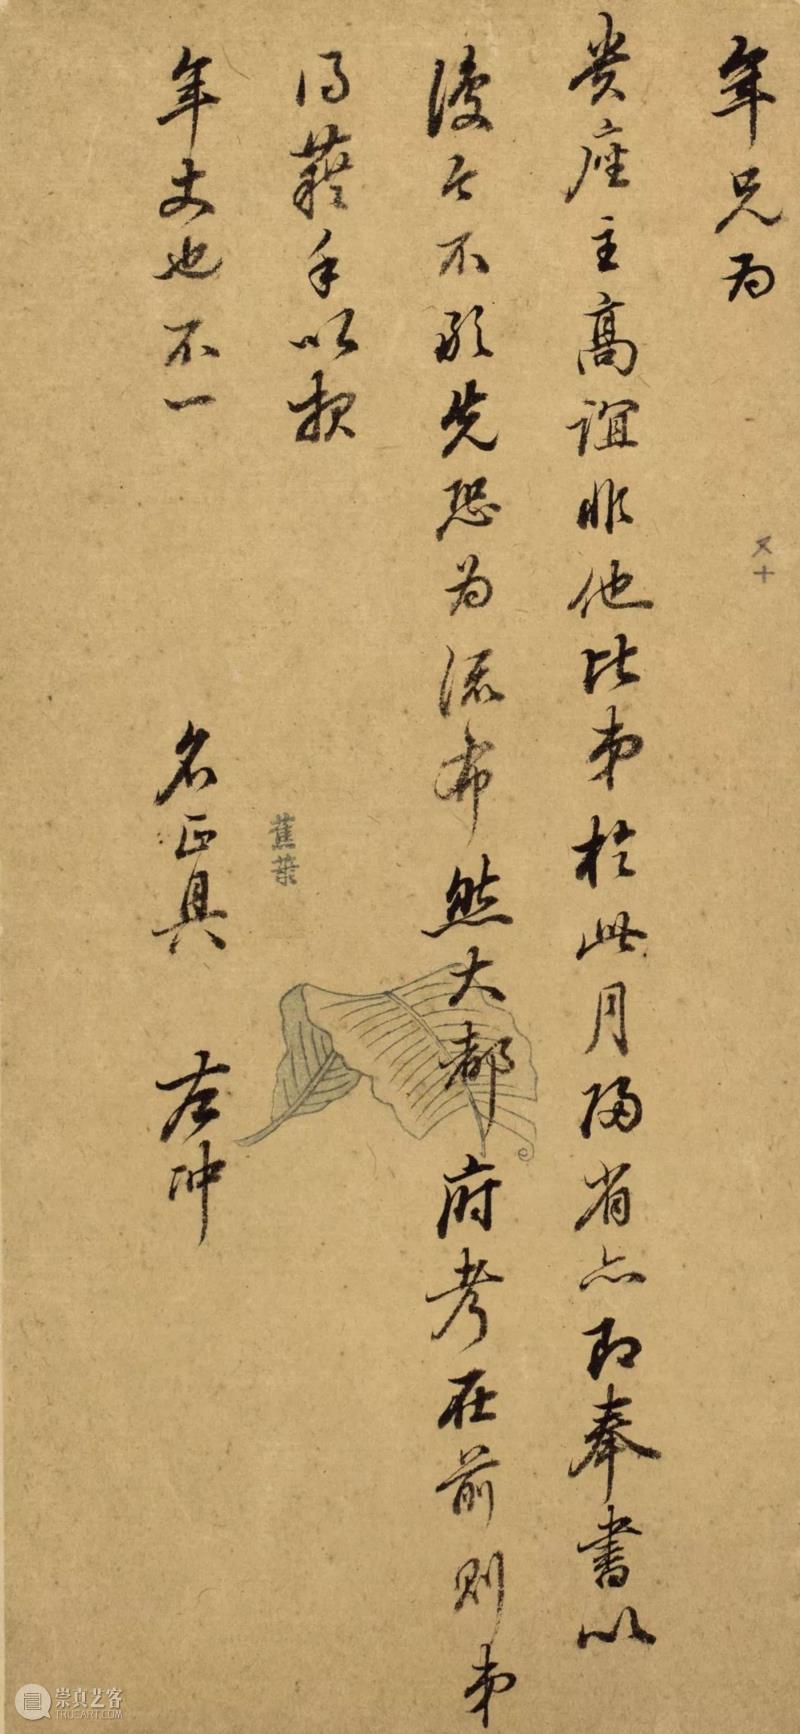 年兄为
贵座主高谊非他比弟於此月归省亦即奉书以
后之不敢先恐为流布然大都府考在前则弟
得藉手以报
年丈也不一
名正具 左冲
又十
蕉叶
崇真艺客
TRUEART.COM